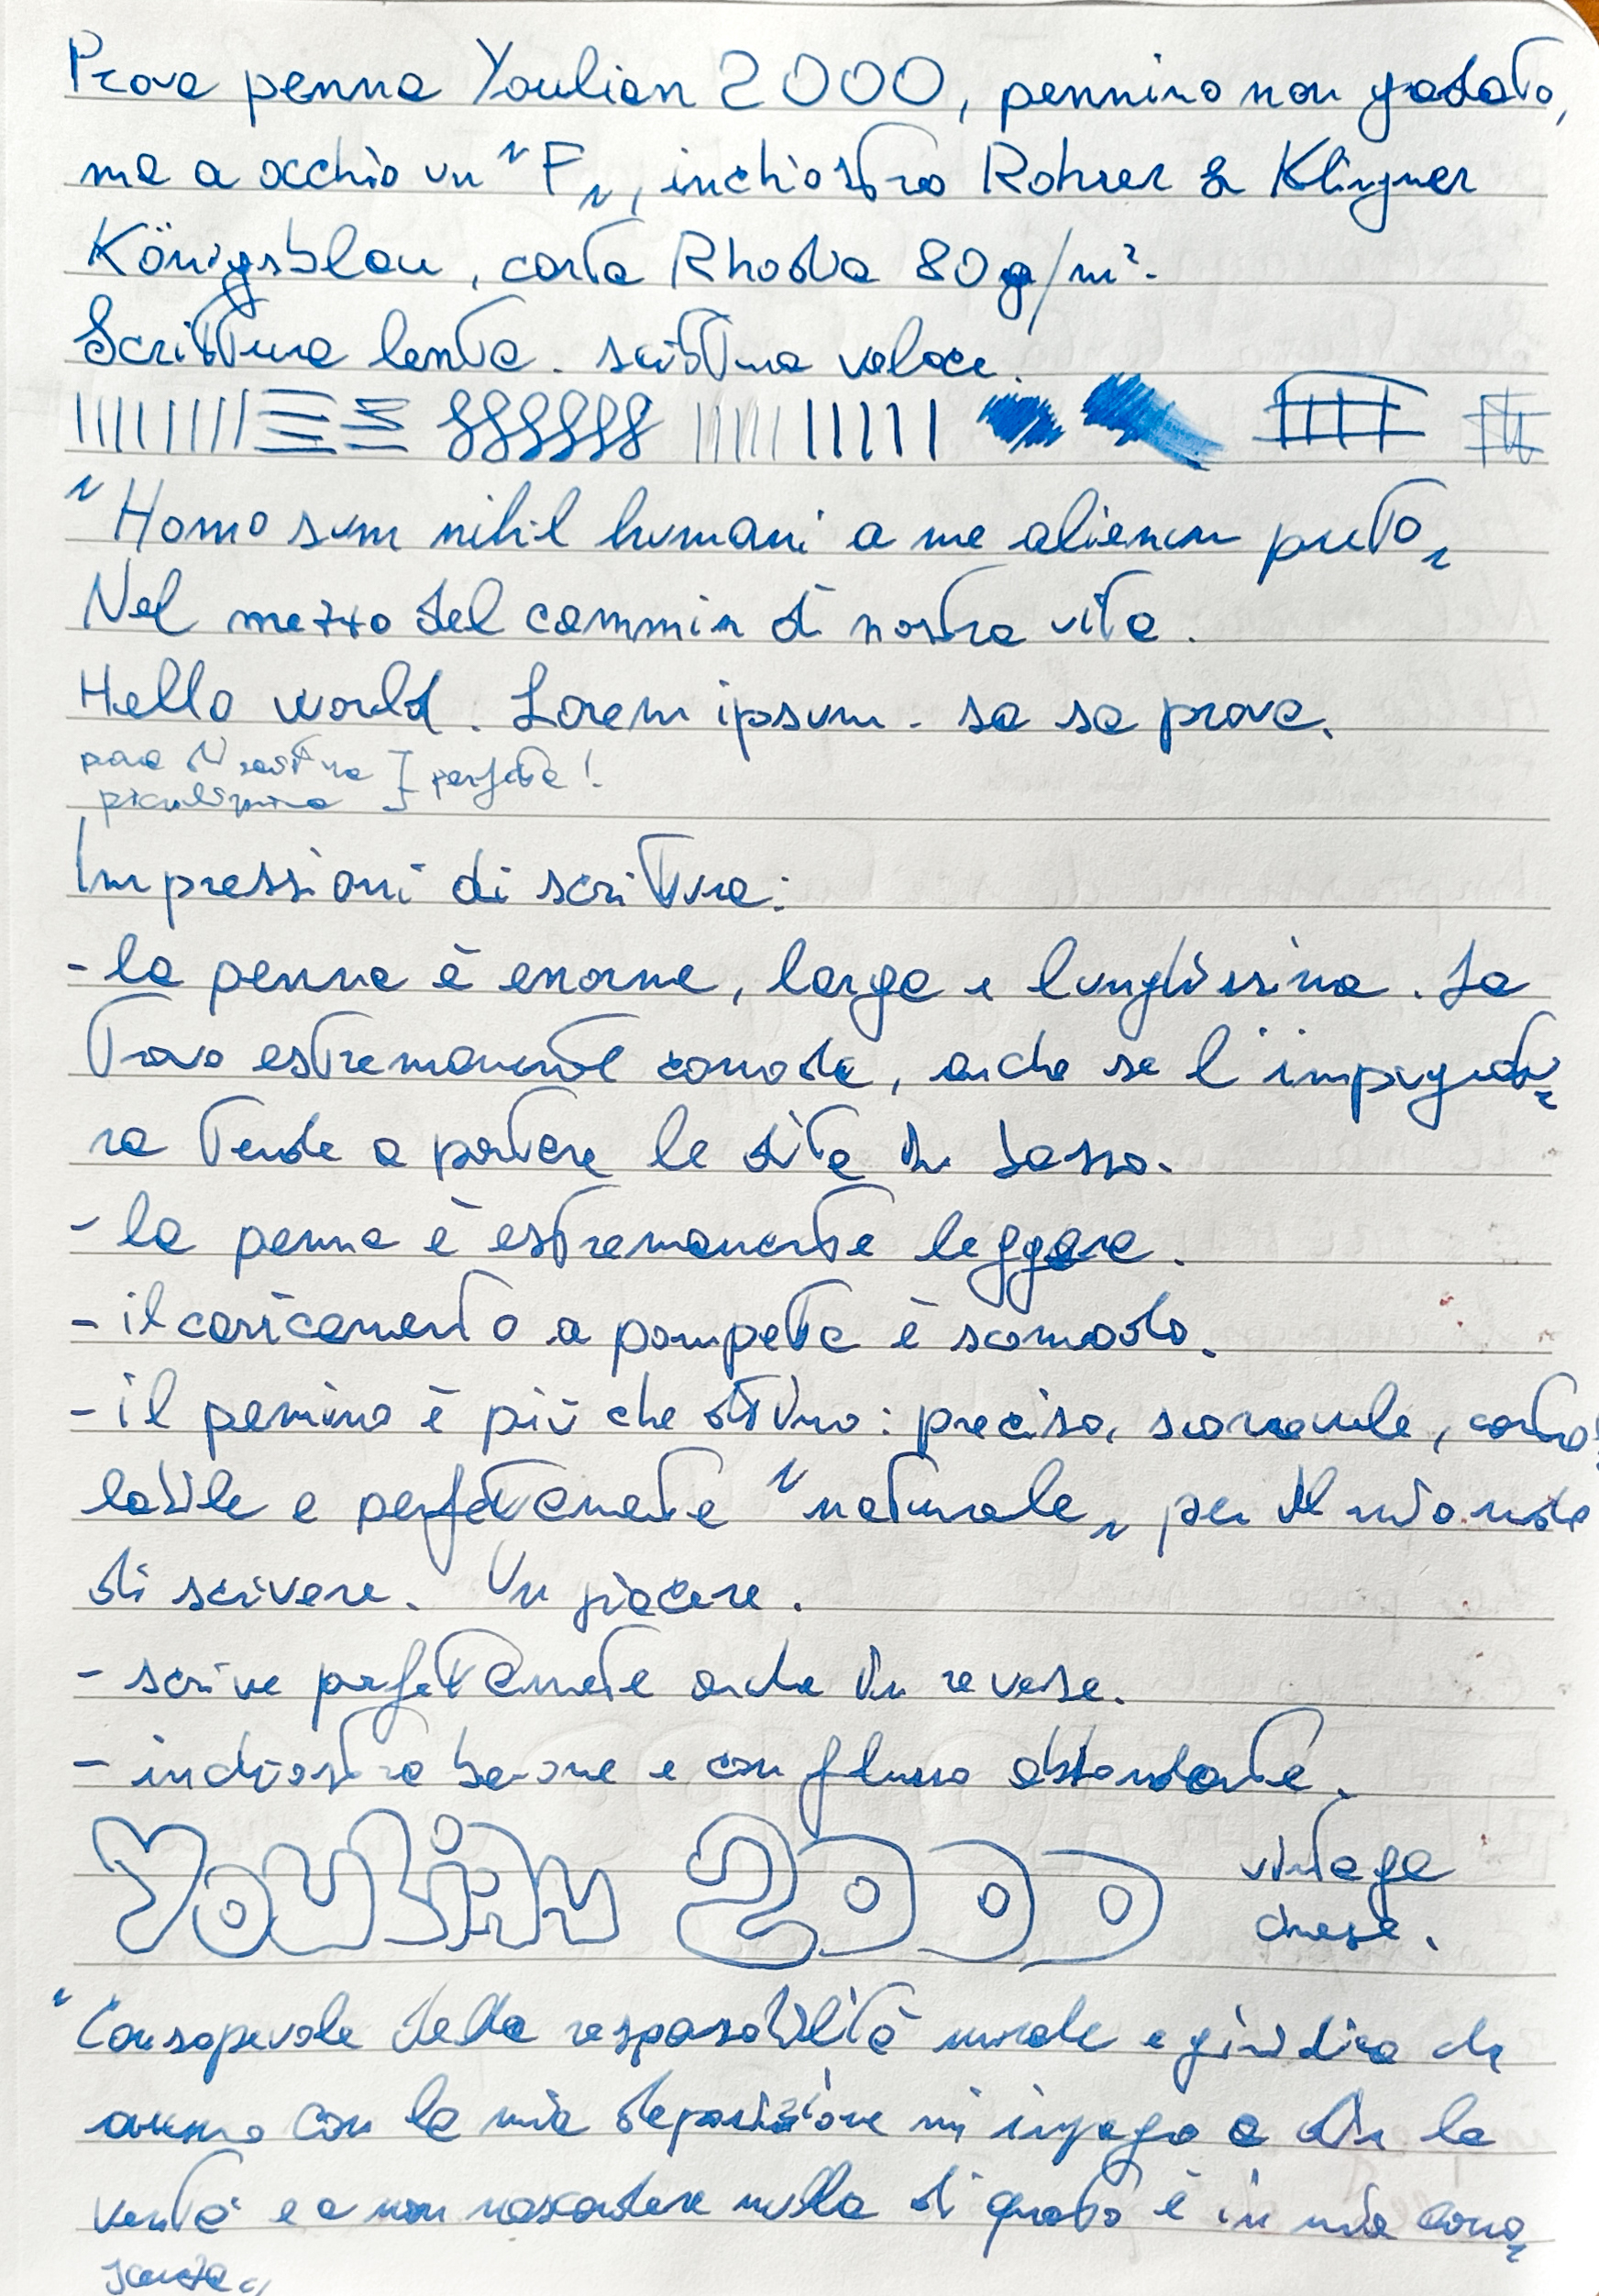 Prova penna Youlian 2000, pennino non gradato,
ma a occhio un "F", inchiostro Rohrer & Klingner
Königsblau, carta Rhodia 80g/m².
Scrittura lenta. scrittura veloce.
"Homo sum nihil humani a me alienum puto"
Nel mezzo del cammin di nostra vita.
Hello world. Lorem ipsum. sa sa prova.
prova di scrittura } perfetta!
piccolissima
Impressioni di scrittura:
- la penna è enorme, larga e lunghissima. La
trovo estremamente comoda, anche se l'impugnatu-
ra tende a portare le dita in basso.
- la penna è estremamente leggera.
- il caricamento a pompetta è scomodo.
- il pennino è più che ottimo: preciso, scorrevole, control-
labile e perfettamente "naturale" per il mio modo
di scrivere. Un piacere.
- scrive perfettamente anche in reverse.
- inchiostro benone e con flusso abbondante.
Youlian 2000 vintage
cinese.
"Consapevole della responsabilità morale e giuridica che
assumo con la mia deposizione mi impegno a dire la
verità e a non nascondere nulla di quanto è in mia cono-
scenza"